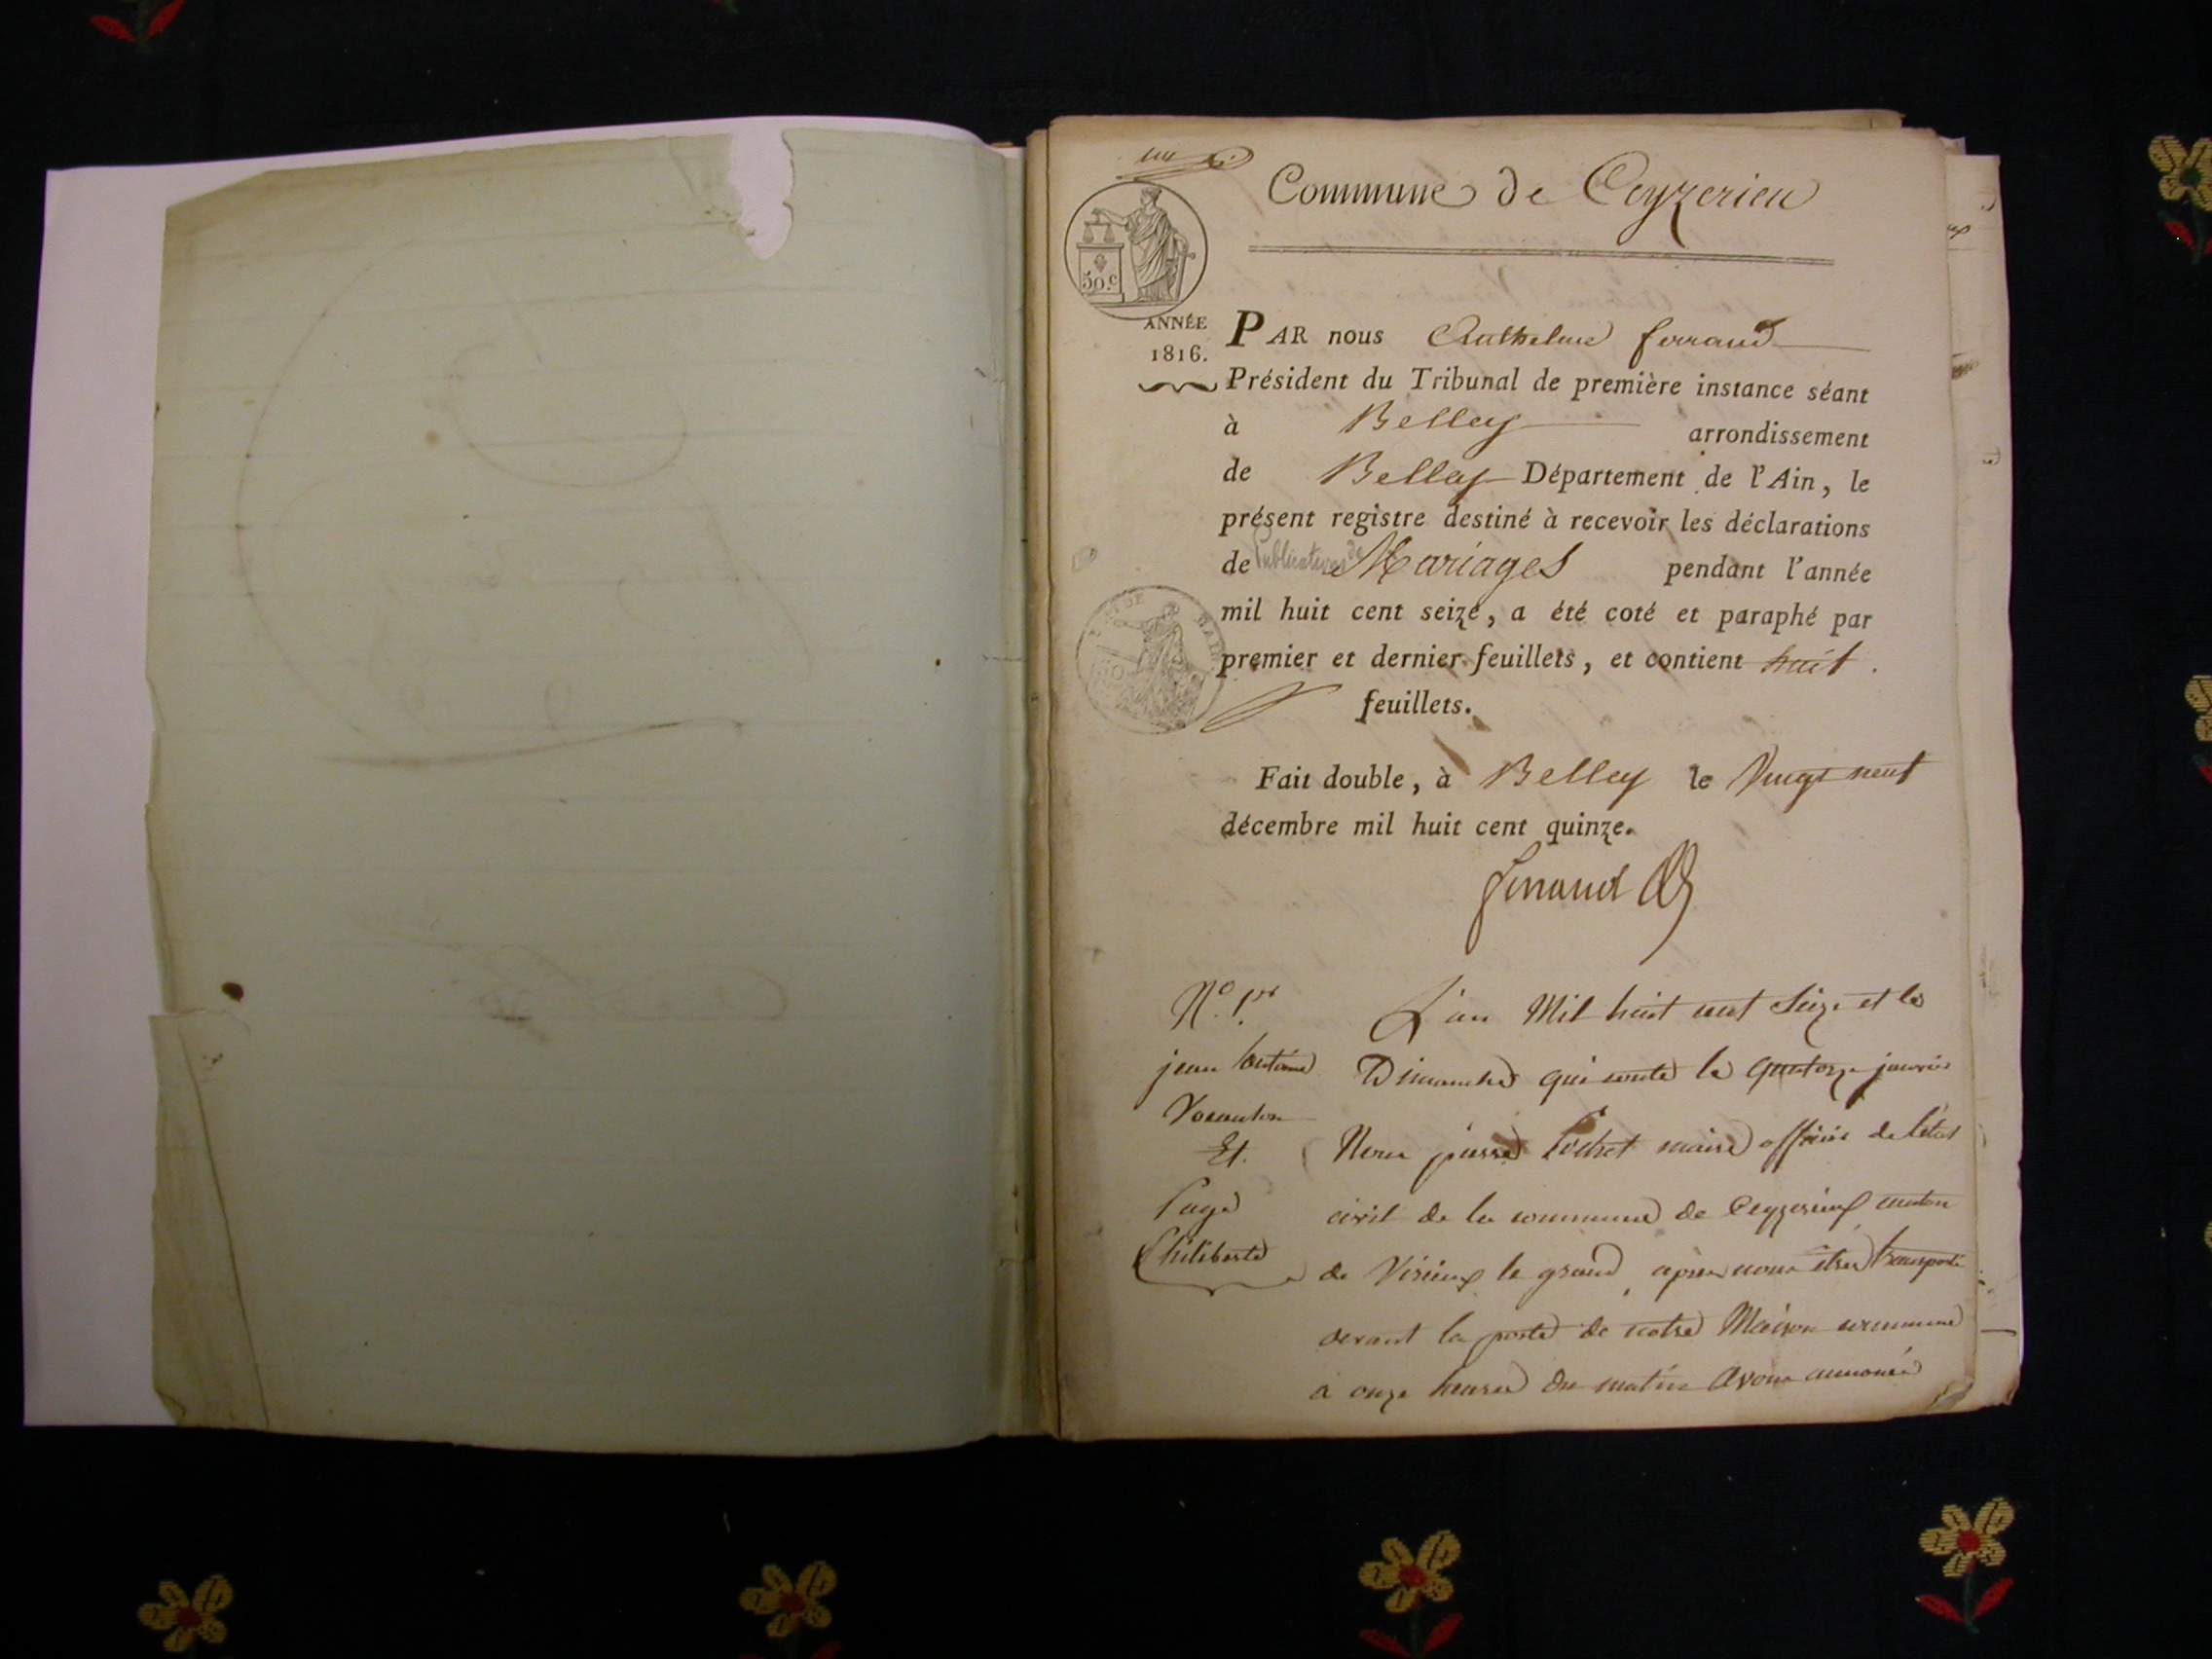 Commune de Ceyzerieu
50.c
ANNÉE
1816.
PAR nous Anthelme ferrand
Président du Tribunal de première instance séant
à Belley arrondissement
de Belley Département de l'Ain, le
présent registre destiné à recevoir les déclarations
de Publications de Mariages pendant l'année
mil huit cent seize, a été coté et paraphé par
premier et dernier feuillets, et contient huit
feuillets.
Fait double, à Belley le Vingt neuf
décembre mil huit cent quinze.
ferrand
N.o 1.er
jean
Et.
Page
Philiberte
L'an Mil huit cent Seize et le
Dimanche qui conte le quatorze janvier
Nous pierre Pochet maire officier de l'état
civil de la commune de Ceyzerieux canton
de Virieux le grand, apres nous etre transporté
devant la porte de notre Maison commune
a onze heures du matin avons annoncé